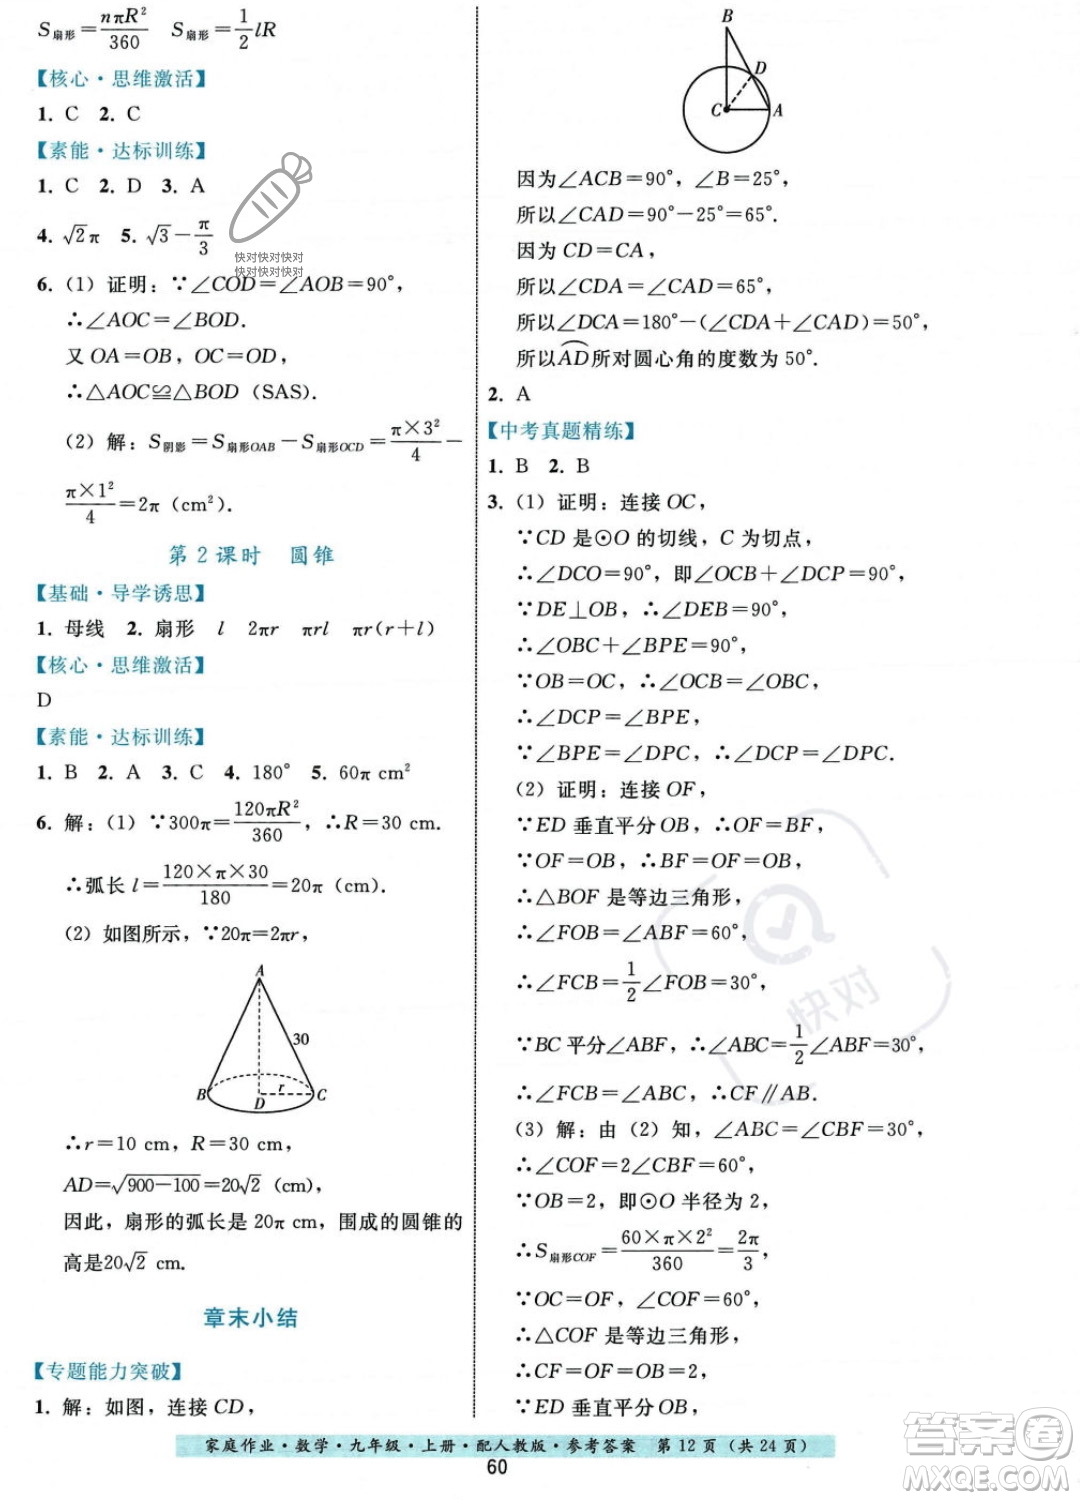 S扇形=nπR²/360  S扇形=1/2 lR
【核心·思维激活】
1. C  2. C
【素能·达标训练】
1. C  2. D  3. A
4. √2π  5. √3－π/3
快对快对快对
快对快对快对
6.（1）证明：∵∠COD=∠AOB=90°，
∴∠AOC=∠BOD.
又 OA=OB，OC=OD，
∴△AOC≌△BOD（SAS）.
（2）解：S阴影=S扇形OAB－S扇形OCD=π×3²/4－
π×1²/4=2π（cm²）.
第 2 课时  圆锥
【基础·导学诱思】
1. 母线  2. 扇形  l  2πr  πrl  πr(r＋l)
【核心·思维激活】
D
【素能·达标训练】
1. B  2. A  3. C  4. 180°  5. 60π cm²
6. 解：（1）∵300π=120πR²/360，∴R=30 cm.
∴弧长 l=120×π×30/180=20π（cm）.
（2）如图所示，∵20π=2πr，
A
30
B
r
D
C
∴r=10 cm，R=30 cm，
AD=√(900－100)=20√2（cm），
因此，扇形的弧长是 20π cm，围成的圆锥的
高是20√2 cm.
章末小结
【专题能力突破】
1. 解：如图，连接 CD，
B
D
C
A
因为∠ACB=90°，∠B=25°，
所以∠CAD=90°－25°=65°.
因为 CD=CA，
所以∠CDA=∠CAD=65°，
所以∠DCA=180°－(∠CDA＋∠CAD)=50°，
所以⌒AD所对圆心角的度数为 50°.
2. A
【中考真题精练】
1. B  2. B
3.（1）证明：连接 OC，
∵CD 是⊙O 的切线，C 为切点，
∴∠DCO=90°，即∠OCB＋∠DCP=90°，
∵DE⊥OB，∴∠DEB=90°，
∴∠OBC＋∠BPE=90°，
∵OB=OC，∴∠OCB=∠OBC，
∴∠DCP=∠BPE，
∵∠BPE=∠DPC，∴∠DCP=∠DPC.
（2）证明：连接 OF，
∵ED 垂直平分 OB，∴OF=BF，
∵OF=OB，∴BF=OF=OB，
∴△BOF 是等边三角形，
∴∠FOB=∠ABF=60°，
∴∠FCB=1/2∠FOB=30°，
∵BC 平分∠ABF，∴∠ABC=1/2∠ABF=30°，
∴∠FCB=∠ABC，∴CF∥AB.
（3）解：由（2）知，∠ABC=∠CBF=30°，
∴∠COF=2∠CBF=60°，
∵OB=2，即⊙O 半径为 2，
∴S扇形COF=60×π×2²/360=2π/3，
∵OC=OF，∠COF=60°，
∴△COF 是等边三角形，
∴CF=OF=OB=2，
∵ED 垂直平分 OB，
快对
家庭作业·数学·九年级·上册·配人教版·参考答案  第 12 页（共 24 页）
60
答案圈
MXQE.COM